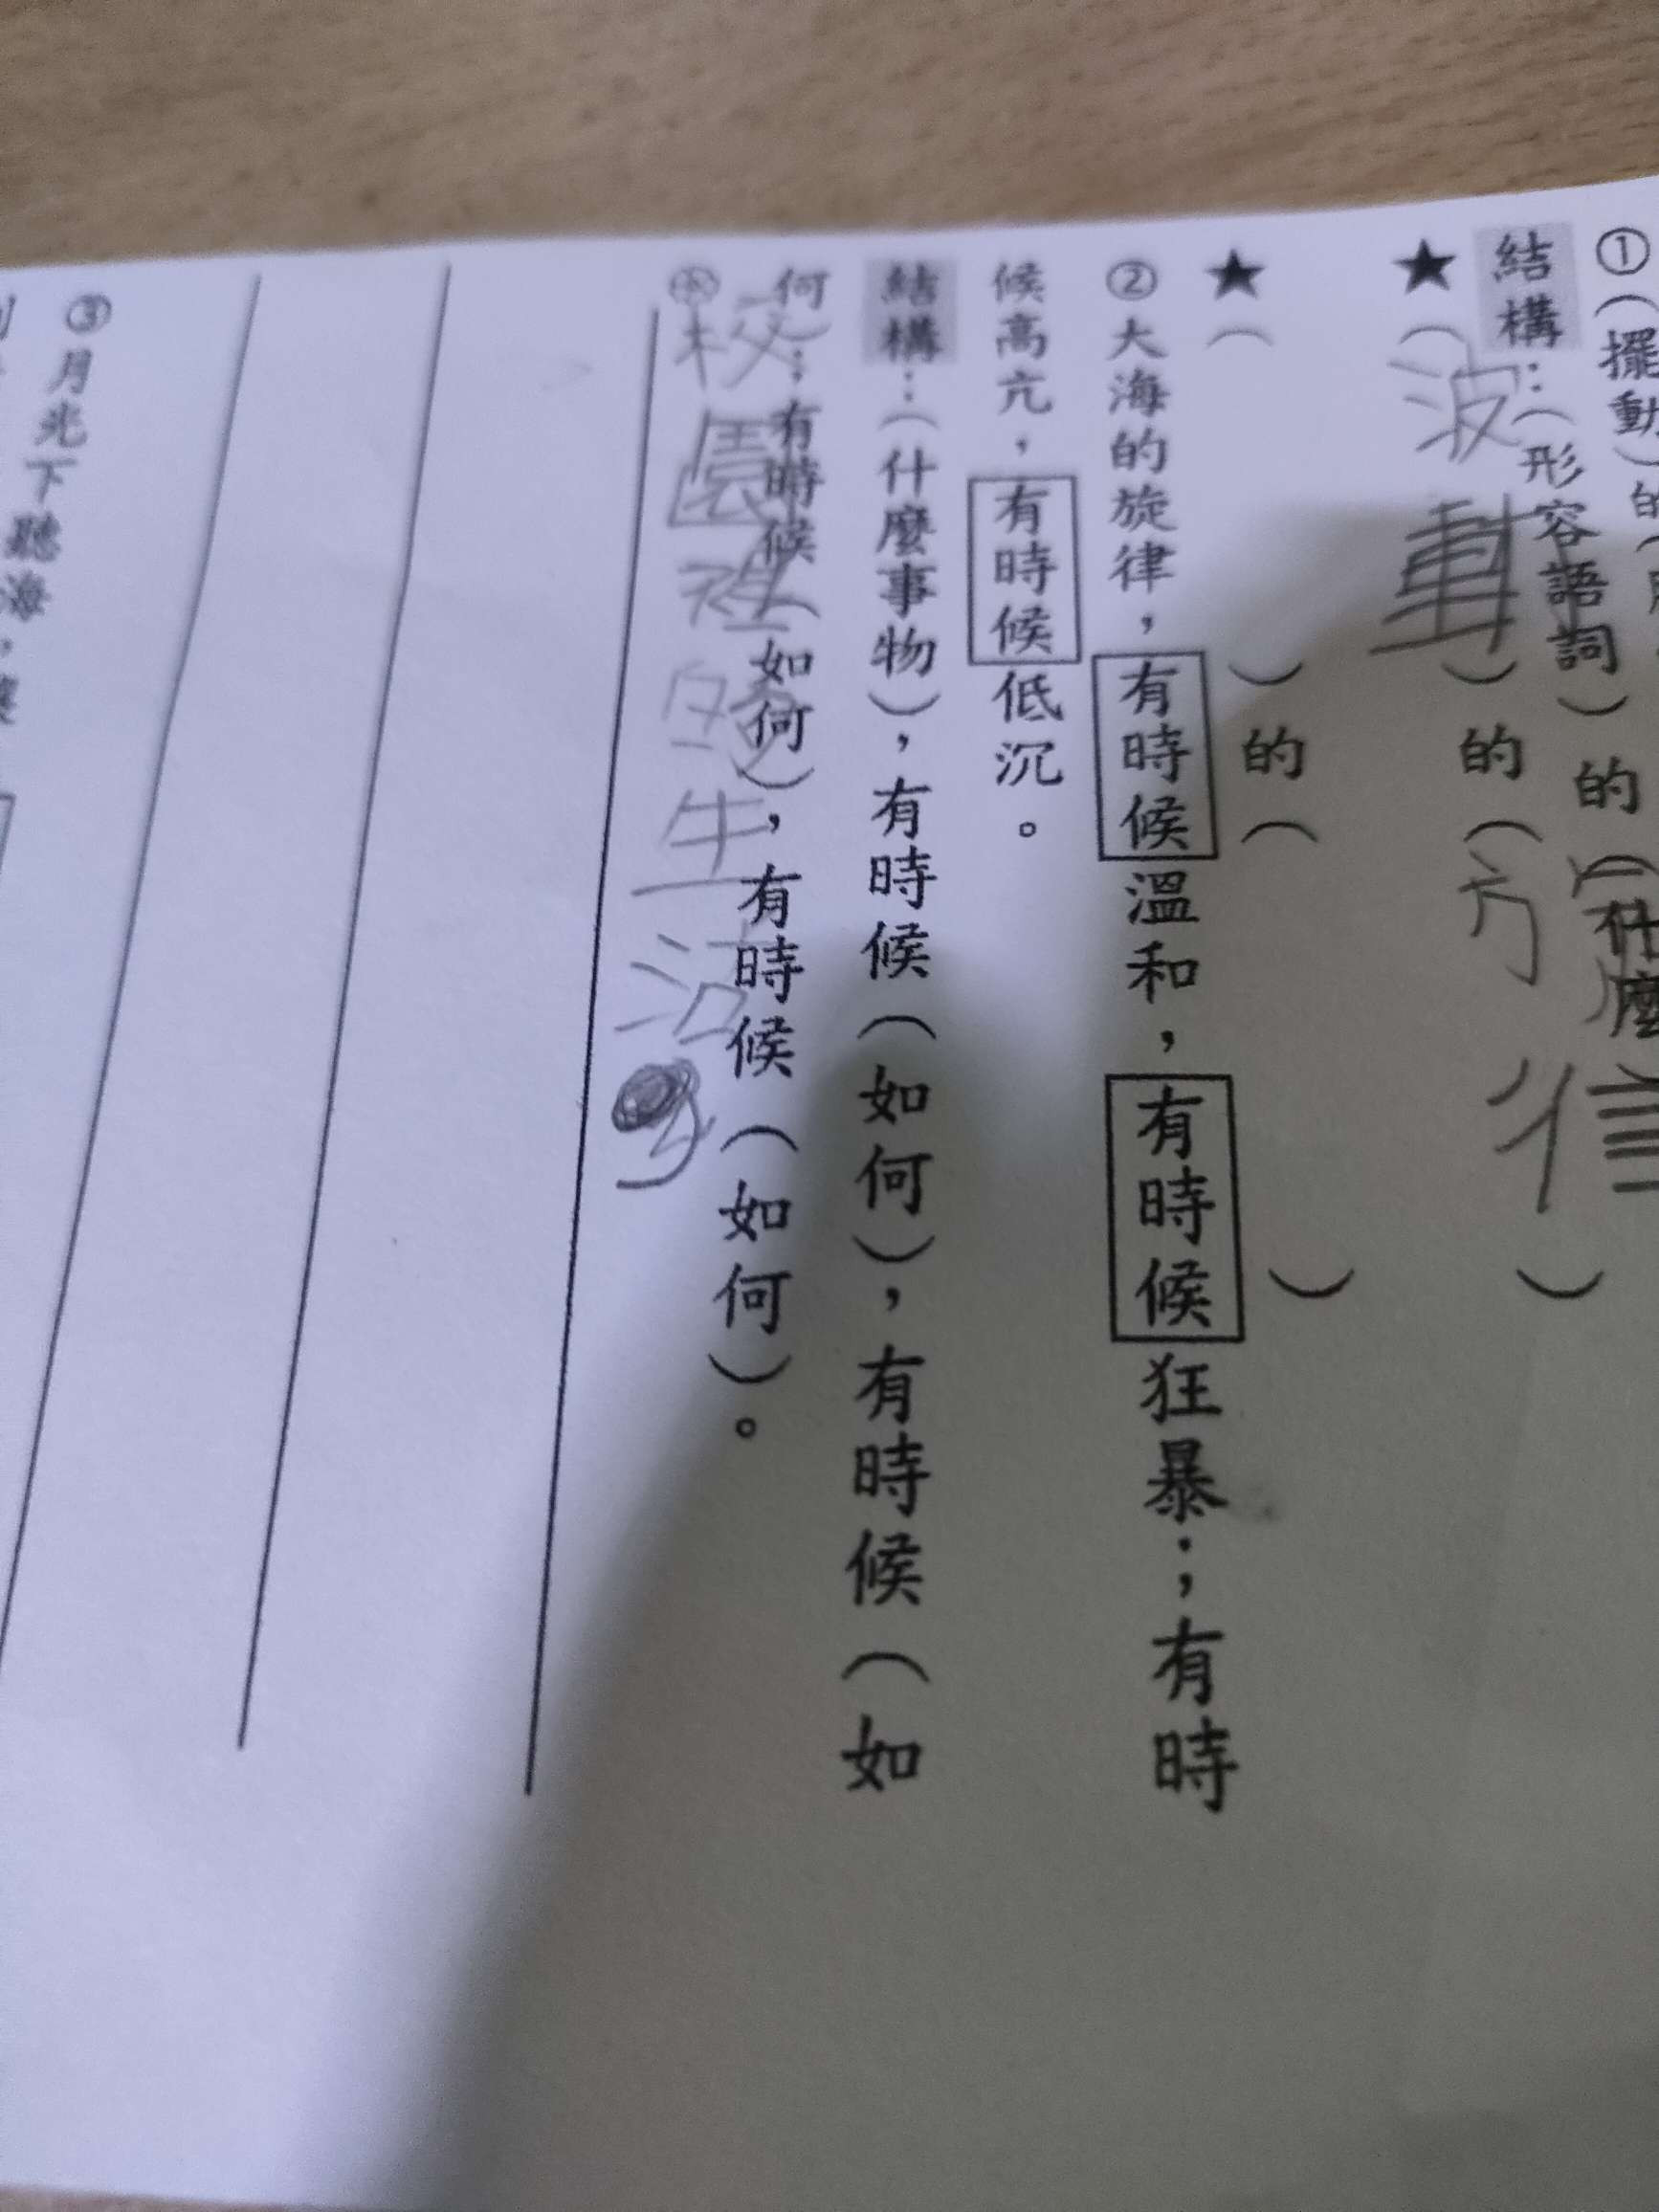 ①（擺動）的（
結構：（形容語詞）的（什麼）
★（波動）的（方　）
★（　）的（　）
②大海的旋律，有時候溫和，有時候狂暴；有時
候高亢，有時候低沉。
結構：（什麼事物），有時候（如何），有時候（如
何）；有時候（如何），有時候（如何）。
校園裡的生活
③月光下聽海，